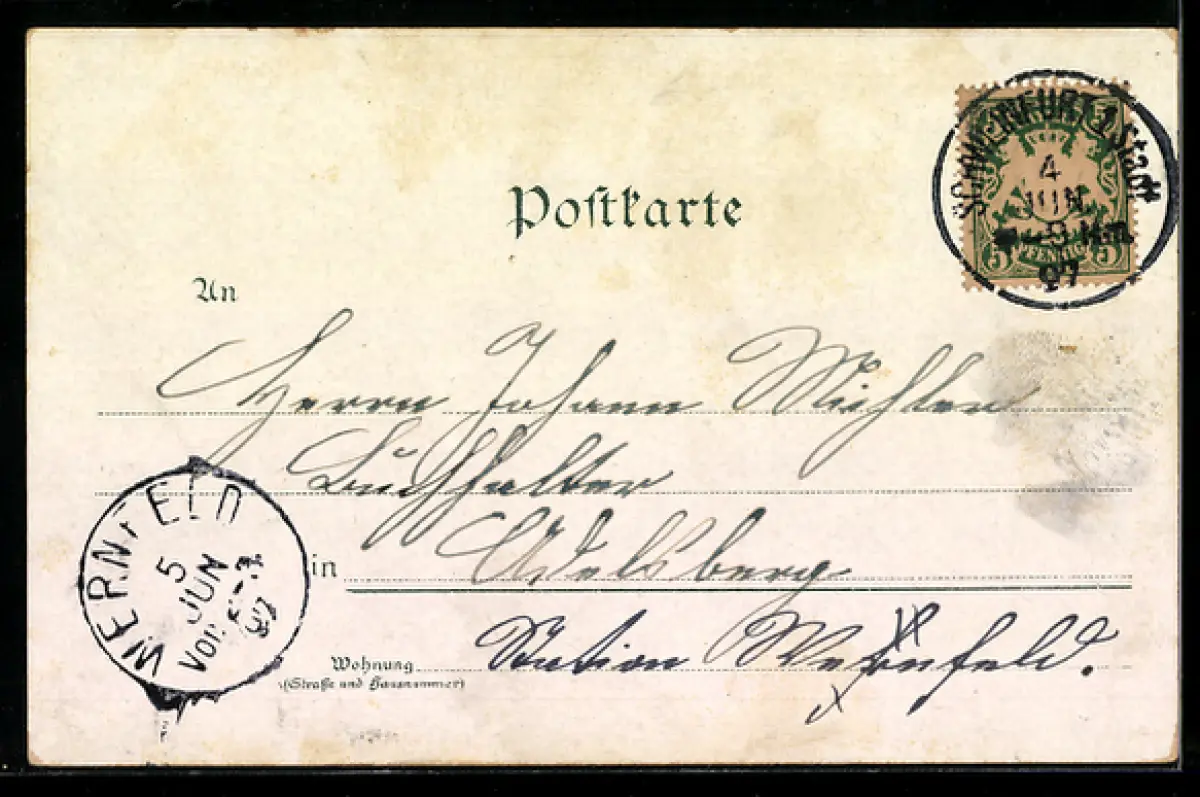 Postkarte
SCHWEINFURT 1. Stadt
4
JUN.
8 Nm.
97
5 PFENNIG 5
An
Herrn Johann
Buchhalter
in Adelsberg
WERNFELD
5
JUN
Vor.
97
Wohnung Station Wernfeld.
(Straße und Hausnummer)